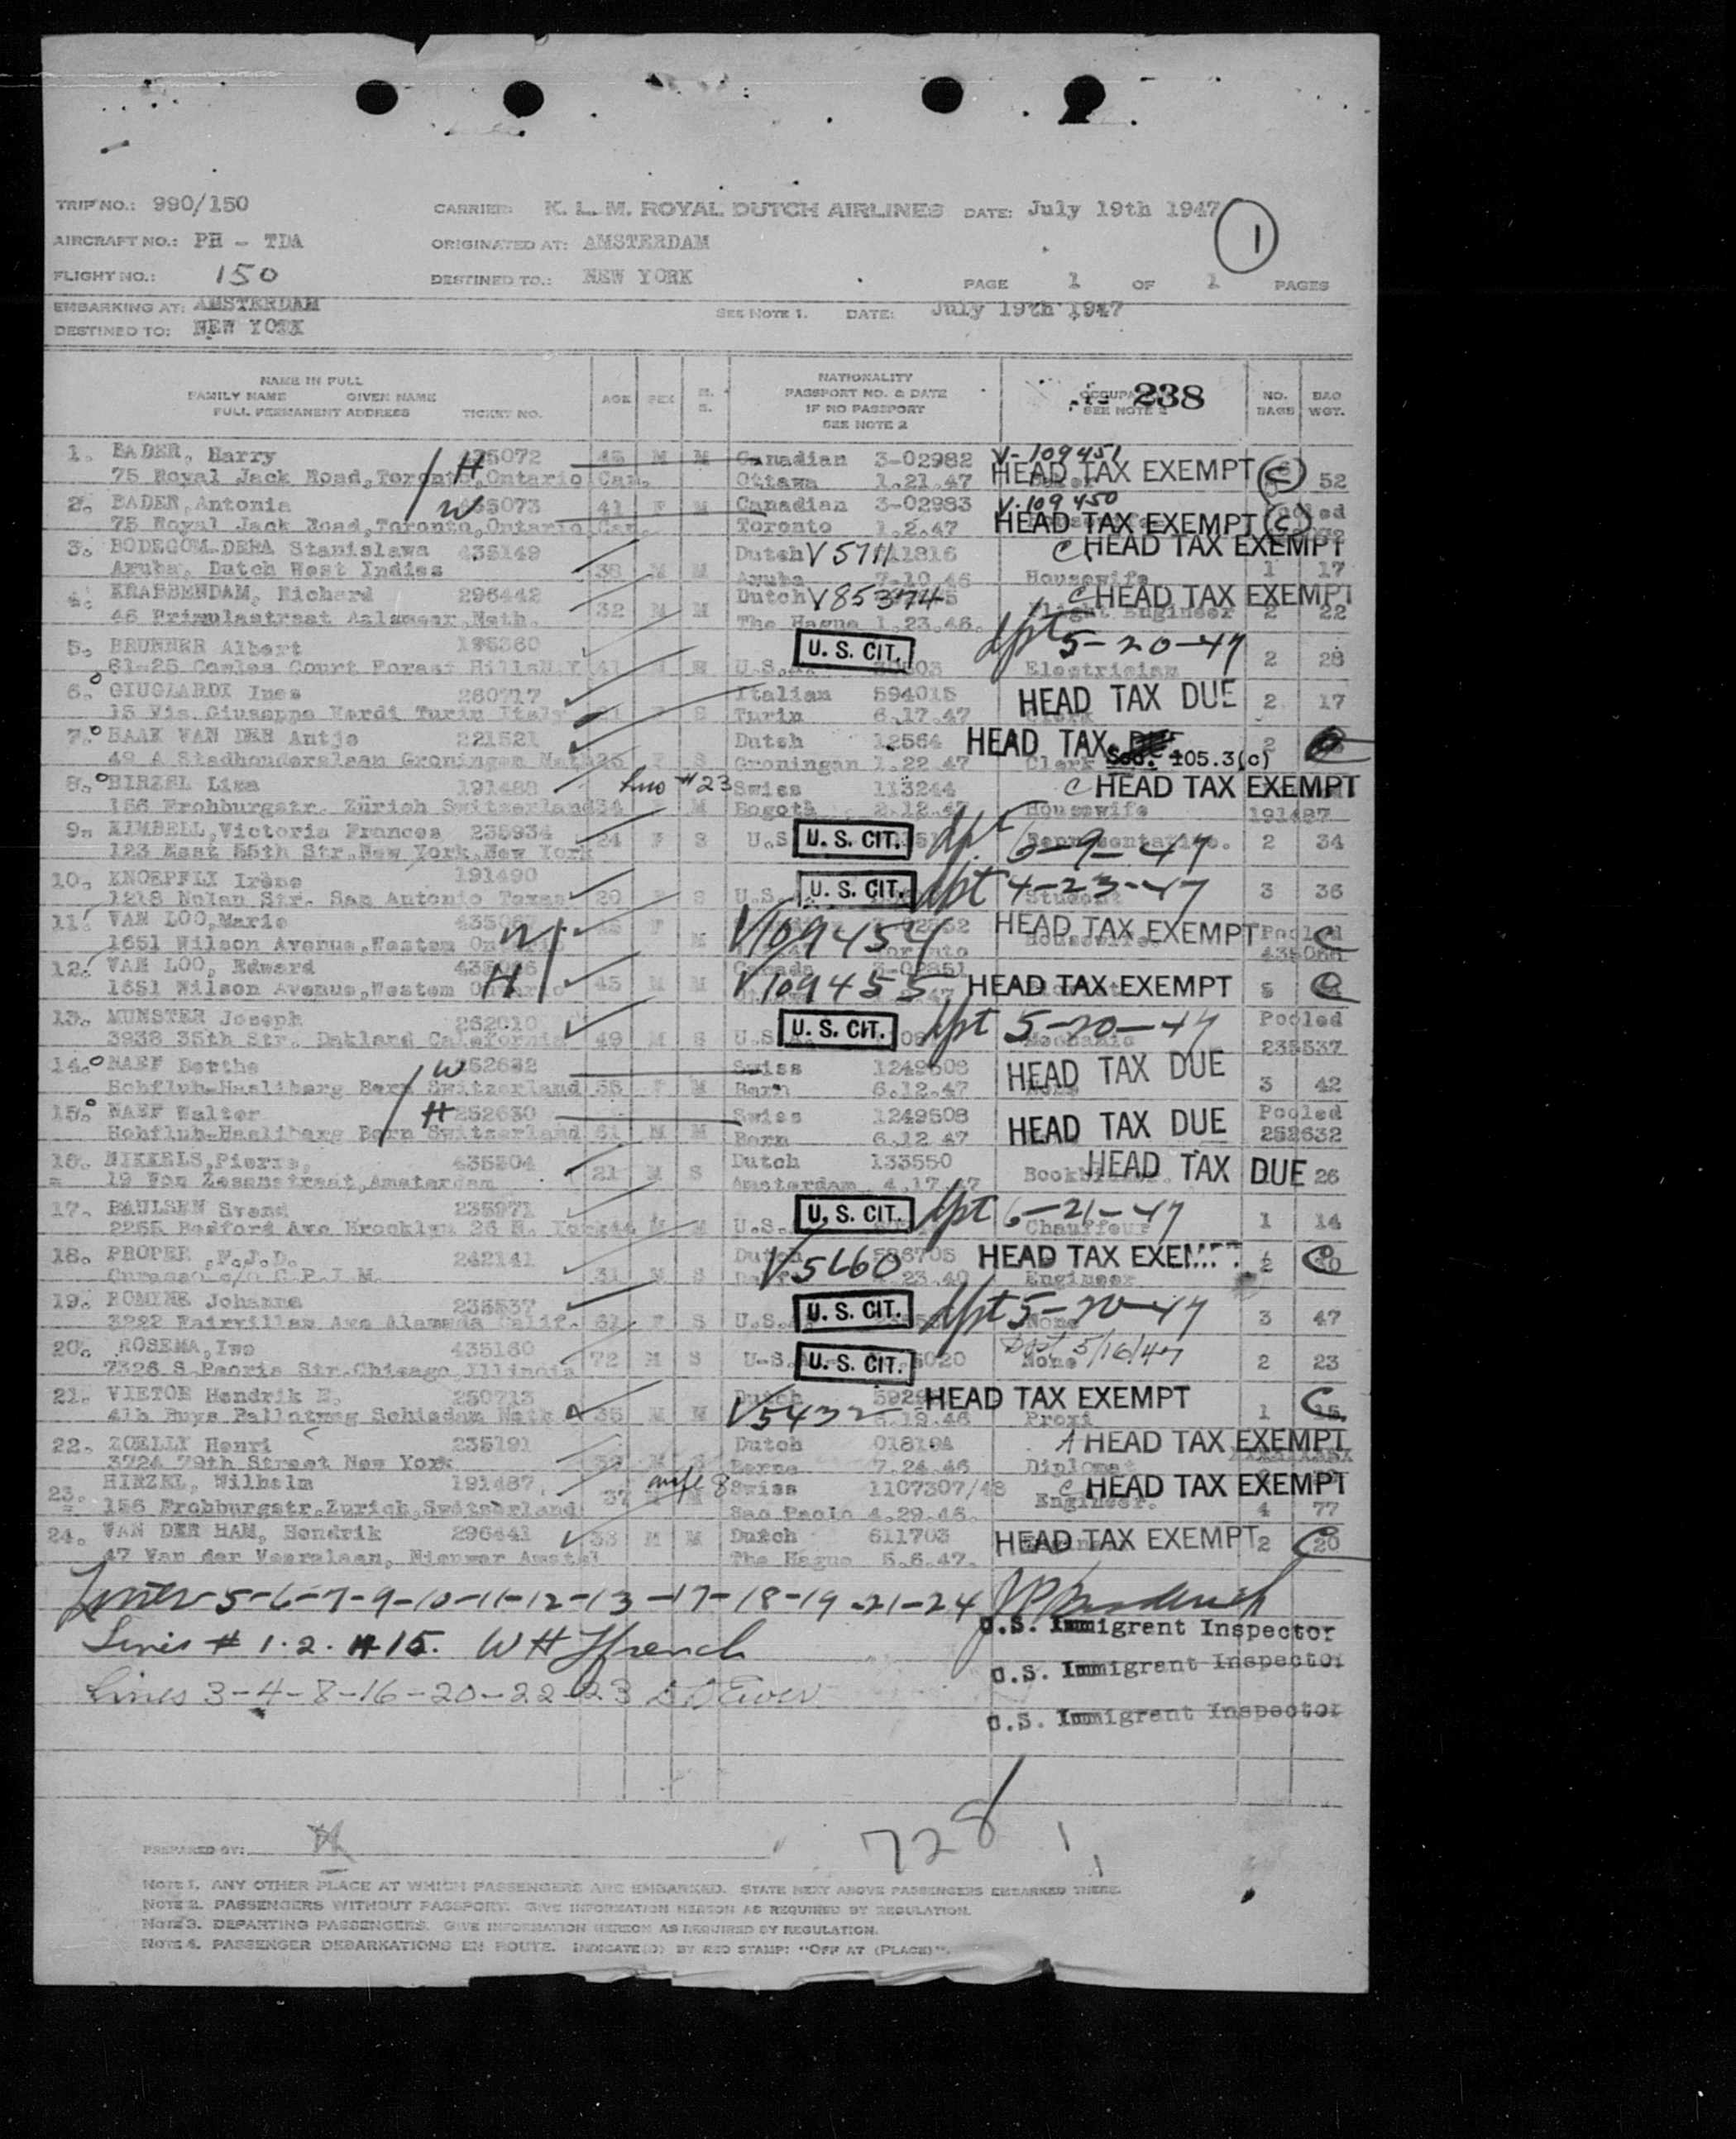 TRIP NO.: 990/150 CARRIER: K. L. M. ROYAL DUTCH AIRLINES DATE: July 19th 1947
1
AIRCRAFT NO.: PH - TDA ORIGINATED AT: AMSTERDAM
FLIGHT NO.: 150 DESTINED TO.: NEW YORK PAGE 1 OF 1 PAGES
EMBARKING AT: AMSTERDAM SEE NOTE 1. DATE: July 19th 1947
DESTINED TO: NEW YORK
NAME IN FULL NATIONALITY
FAMILY NAME GIVEN NAME AGE SEX M. PASSPORT NO. & DATE 238 NO. BAG
FULL PERMANENT ADDRESS TICKET NO. S. IF NO PASSPORT SEE NOTE 2 BAGS WGT.
SEE NOTE 2
1. BADER, Harry H 435072 45 M M Canadian 3-02982 V-109451
75 Royal Jack Road, Toronto, Ontario Can. Ottawa 1.21.47 HEAD TAX EXEMPT C 52
2. BADER, Antonia W 435073 41 F M Canadian 3-02983 V-109450
75 Royal Jack Road, Toronto, Ontario Can. Toronto 1.2.47 HEAD TAX EXEMPT C
3. BODEGOM-DEBA Stanislawa 435149 Dutch V5711 11816 C HEAD TAX EXEMPT
Aruba, Dutch West Indies 38 M M Aruba 7-10.46 Housewife 1 17
4. KRABBENDAM, Richard 296442 32 M M Dutch V85374 C HEAD TAX EXEMPT
46 Primulastraat Aalsmeer, Neth. The Hague 1.23.46. Flight Engineer 2 22
5. BRUNNER Albert 195360 U. S. CIT. dpt 5-20-47
61-25 Cowles Court Forest Hills N.Y 41 M U.S.A. Electrician 2 28
6. GIUGIARDI Ines 260717 Italian 594015 HEAD TAX DUE 2 17
15 Via Giuseppe Verdi Turin Italy S Turin 6.17.47 Clerk
7. HAAK VAN DER Antje 221521 Dutch 12564 HEAD TAX 2
49 A Stadhouderslaan Groningen Neth 25 F S Groningan 1.22 47 Clerk Sec. 105.3(c)
8. HIRZEL Lisa 191488 Line #23 Swiss 113244 C HEAD TAX EXEMPT
156 Frohburgstr. Zürich Switzerland 34 M Bogotà 2.12.47 Housewife 191487
9. KIMBELL, Victoria Frances 235934 24 F S U.S. U. S. CIT. dpt 6-9-47 Representative. 2 34
123 East 55th Str. New York, New York
10. KNOEPFLI Irène 191490 U. S. CIT. dpt 4-23-47
1218 Nolan Str. San Antonio Texas 20 F S U.S. Student 3 36
11. VAN LOO, Marie 435067 W F M V109454 HEAD TAX EXEMPT Pooled C
1651 Wilson Avenue, Westem Ontario Toronto Housewife 435066
12. VAN LOO, Edward 435066 H Canada 3-02851
1651 Wilson Avenue, Westem Ontario 45 M M V109455 HEAD TAX EXEMPT 5 C
13. MUNSTER Joseph 262010 U. S. CIT. dpt 5-20-47 Pooled
3938 35th Str. Oakland California 49 M S U.S.A. Mechanic 235537
14. NAEF Berthe W 252632 Swiss 1249508 HEAD TAX DUE
Hohfluh-Hasliberg Bern Switzerland 55 F M Bern 6.12.47 None 3 42
15. NAEF Walter H 252630 Swiss 1249508 HEAD TAX DUE Pooled
Hohfluh-Hasliberg Bern Switzerland 61 M M Bern 6.12 47 252632
16. NIKKELS, Pierre, 435204 21 M S Dutch 133550 HEAD TAX DUE 26
19 Von Zesenstraat, Amsterdam Amsterdam 4.17.47 Bookbinder.
17. PAULSEN Svend 235971 U. S. CIT. dpt 6-21-47
2255 Bedford Ave Brooklyn 26 N. York 44 M M U.S. Chauffeur 1 14
18. PROPER, F.J.D. 242141 Dutch V5660 HEAD TAX EXEMPT C
Curacao c/o C.P.I.M. 31 M S 23.40 Engineer 2 30
19. ROMINE Johanna 235537 U. S. CIT. dpt 5-20-47
3222 Fairvillas Ave Alameda Calif. 61 F S U.S. None 3 47
20. ROSEMA, Iwe 435160 72 M S U.S.A. U. S. CIT. Dpt 5/16/47 None 2 23
7326 S. Peoria Str. Chicago, Illinois
21. VIETOR Hendrik E. 260713 Dutch HEAD TAX EXEMPT C
41b Buys Ballotweg Schiedam Neth 35 M M V5432 5.19.46 Proxi 1 15.
22. ZOELLY Henri 235191 Dutch 01819A A HEAD TAX EXEMPT
3724 79th Street New York M S Berne 7.24.46 Diplomat
23. HIRZEL, Wilhelm 191487. 37 wife 8 Swiss 1107307/48 C HEAD TAX EXEMPT
156 Frohburgstr. Zurich, Switserland Sao Paolo 4.29.46. Engineer. 4 77
24. VAN DER HAM, Hendrik 296441 33 M M Dutch 611703 HEAD TAX EXEMPT 2 C 20
47 Van der Veerelaan, Nieuwer Amstel The Hague 5.6.47.
Lines 5-6-7-9-10-11-12-13-17-18-19-21-24
U.S. Immigrant Inspector
Lines # 1.2. 14 15. W H Ffrench
U.S. Immigrant Inspector
Lines 3-4-8-16-20-22-23
U.S. Immigrant Inspector
728
PREPARED BY:
NOTE 1. ANY OTHER PLACE AT WHICH PASSENGERS ARE EMBARKED. STATE NEXT ABOVE PASSENGERS EMBARKED THERE.
NOTE 2. PASSENGERS WITHOUT PASSPORT. GIVE INFORMATION HEREON AS REQUIRED BY REGULATION.
NOTE 3. DEPARTING PASSENGERS. GIVE INFORMATION HEREON AS REQUIRED BY REGULATION.
NOTE 4. PASSENGER DEBARKATIONS EN ROUTE. INDICATE(D) BY RED STAMP: "OFF AT (PLACE)".